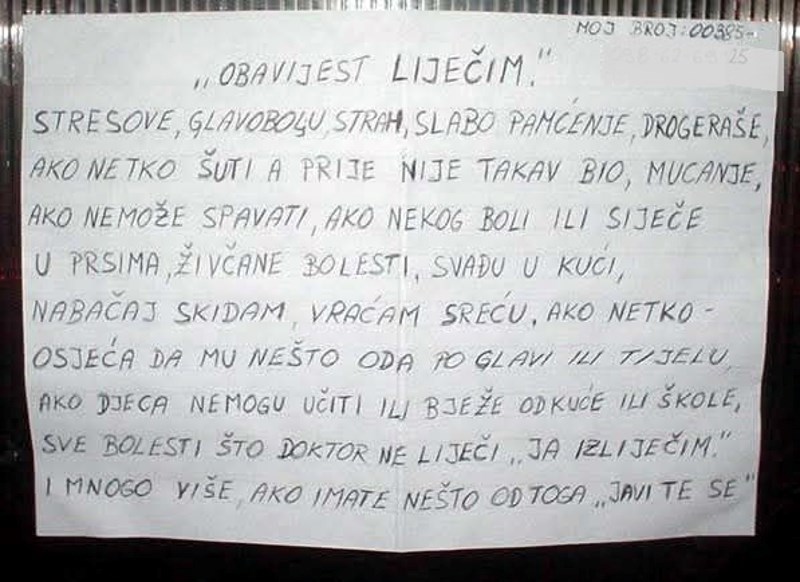 MOJ BROJ: 00385-
25
„OBAVIJEST LIJEČIM."
STRESOVE, GLAVOBOLJU, STRAH, SLABO PAMĆENJE, DROGERAŠE,
AKO NETKO ŠUTI A PRIJE NIJE TAKAV BIO, MUCANJE,
AKO NEMOŽE SPAVATI, AKO NEKOG BOLI ILI SIJEČE
U PRSIMA, ŽIVČANE BOLESTI, SVAĐU U KUĆI,
NABAČAJ SKIDAM, VRAĆAM SREĆU, AKO NETKO -
OSJEĆA DA MU NEŠTO ODA PO GLAVI ILI TIJELU,
AKO DJECA NEMOGU UČITI ILI BJEŽE OD KUĆE ILI ŠKOLE,
SVE BOLESTI ŠTO DOKTOR NE LIJEČI „JA IZLIJEČIM."
I MNOGO VIŠE, AKO IMATE NEŠTO OD TOGA „JAVITE SE"